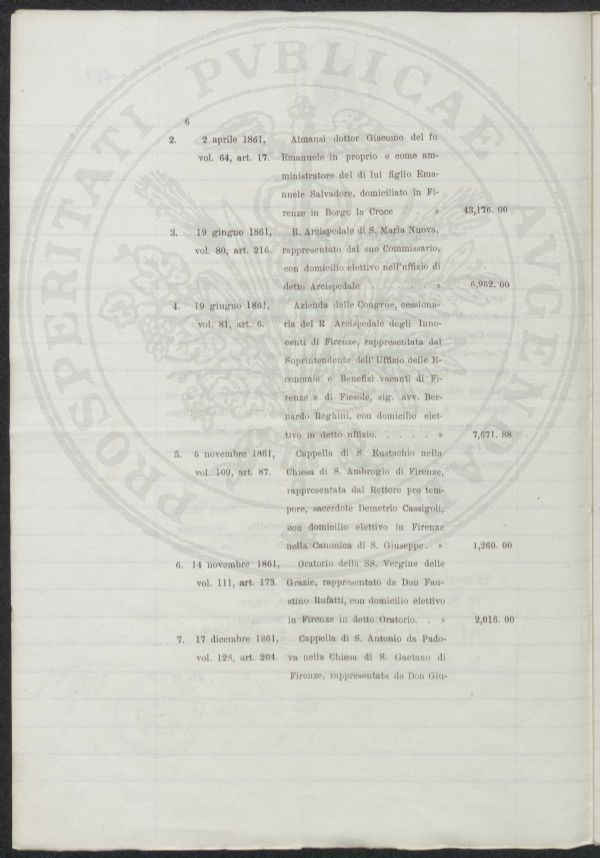 PROSPERITATI PVBLICAE AVGENDAE
6
2. 2 aprile 1861, Almansi dottor Giacomo del fu
vol. 64, art. 17. Emanuele in proprio e come am-
ministratore del di lui figlio Ema-
nuele Salvadore, domiciliato in Fi-
renze in Borgo la Croce . . » 43,176. 00
3. 19 giugno 1861, R. Arcispedale di S. Maria Nuova,
vol. 80, art. 216. rappresentato dal suo Commissario,
con domicilio elettivo nell'uffizio di
detto Arcispedale . . . . . . » 6,962. 00
4. 19 giugno 1861, Azienda delle Congrue, cessiona-
vol. 81, art. 6. ria del R Arcispedale degli Inno-
centi di Firenze, rappresentata dal
Soprintendente dell' Uffizio delle E-
conomie e Benefizi vacanti di Fi-
renze e di Fiesole, sig. avv. Ber-
nardo Reghini, con domicilio elet-
tivo in detto uffizio. . . . . . » 7,671. 88
5. 6 novembre 1861, Cappella di S. Eustachio nella
vol. 109, art. 87. Chiesa di S. Ambrogio di Firenze,
rappresentata dal Rettore pro tem-
pore, sacerdote Demetrio Cassigoli,
con domicilio elettivo in Firenze
nella Canonica di S. Giuseppe. » 1,260. 00
6. 14 novembre 1861, Oratorio della SS. Vergine delle
vol. 111, art. 173. Grazie, rappresentato da Don Fau-
stino Rufatti, con domicilio elettivo
in Firenze in detto Oratorio. . » 2,016. 00
7. 17 dicembre 1861, Cappella di S. Antonio da Pado-
vol. 128, art. 204. va nella Chiesa di S. Gaetano di
Firenze, rappresentata da Don Giu-